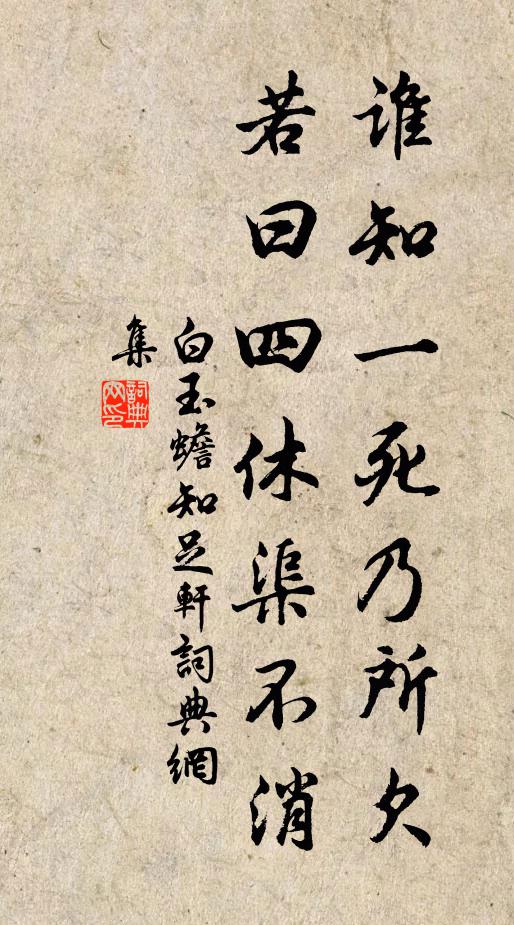 谁知一死乃所欠
若曰四休渠不消
白玉蟾知足軒詞典網
集
詞典網印